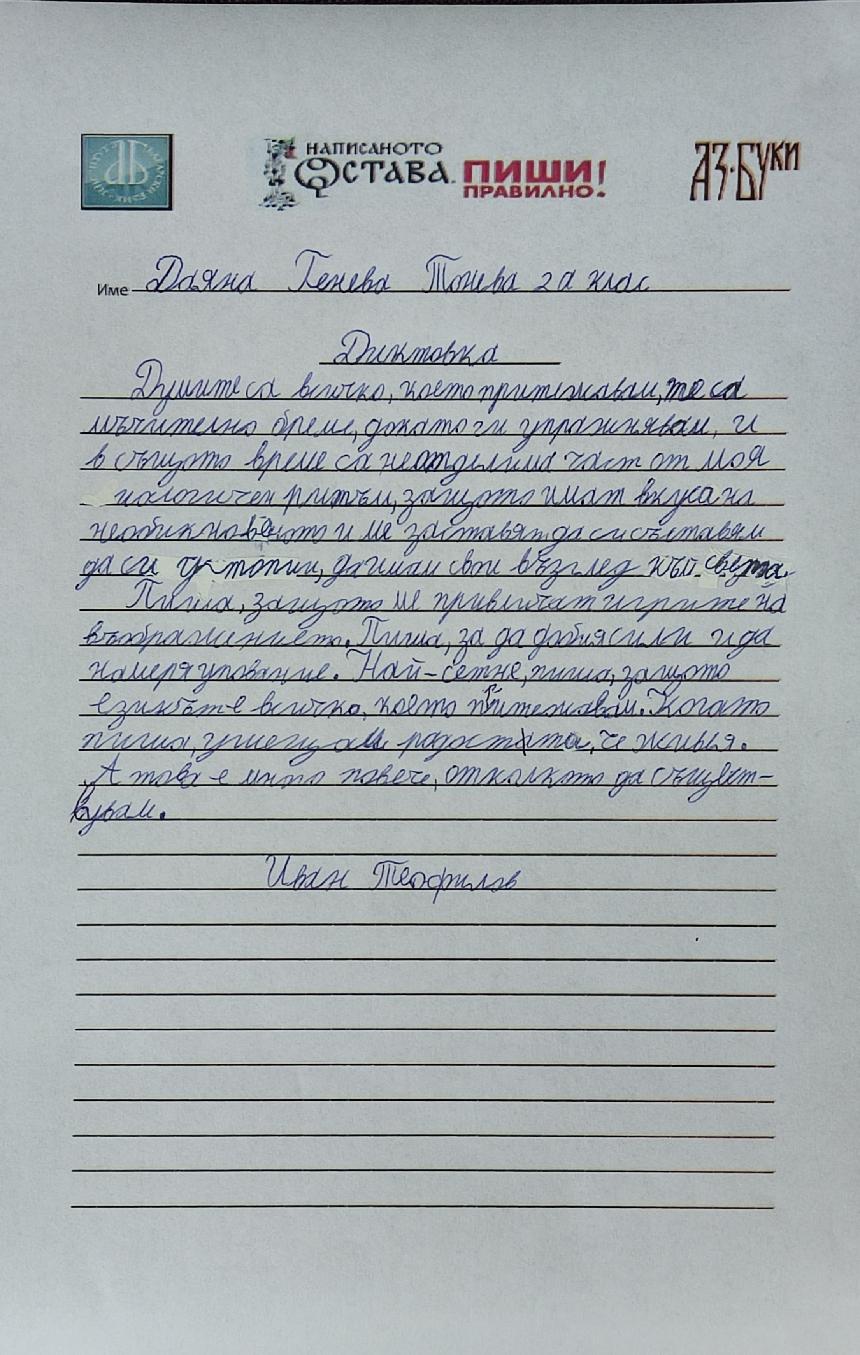 НАПИСАНОТО
ОСТАВА. ПИШИ
ПРАВИЛНО!
АЗ·БУКИ
Име Даяна Генева Тонева 2а клас
Диктовка
Думите са всичко, което притежавам, те са
мъчително бреме, докато ги упражнявам, и
в същото време са неотделима част от моя
ритъм, защото имат вкуса на
необикновеното и ме заставят да си съставям
да си, да имам свои възглед към света.
Пиша, защото ме привличат игрите на
въображението. Пиша, за да добия сили и да
намеря упование. Най-сетне, пиша, защото
езикът е всичко, което притежавам. Когато
пиша, усещам радостта, че живея.
А това е много повече, отколкото да същест-
вувам.
Иван Теофилов